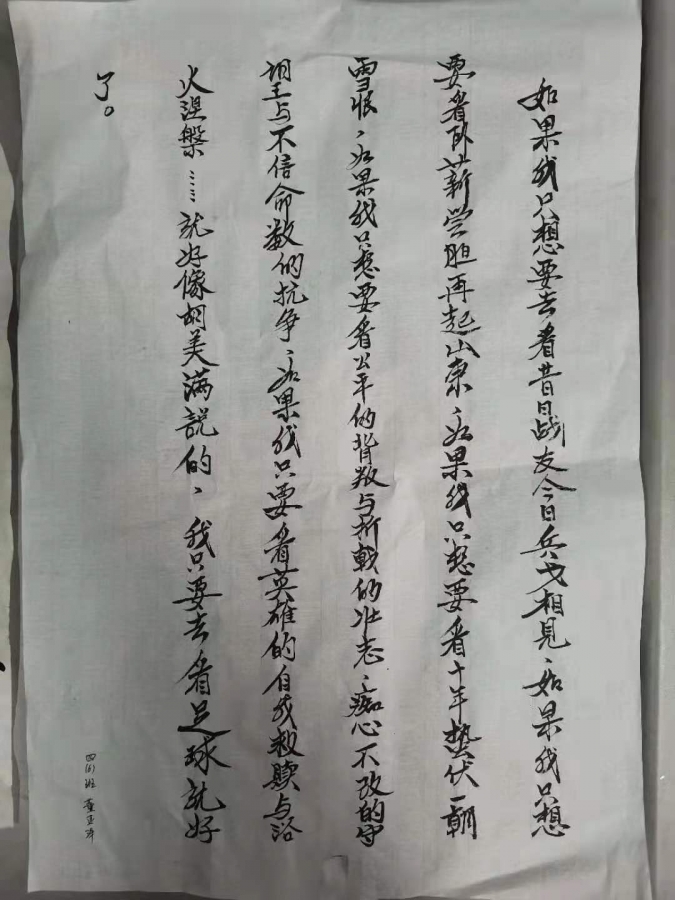 如果我只想要去看昔日战友今日兵戈相見、如果我只想
要看卧薪尝胆再起山東、如果我只想要看十年蛰伏一朝
雪恨、如果我只想要看公平的背叛与折戟的壮志、痴心不改的守
望与不信命数的抗争、如果我只要看英雄的自我救赎与浴
火涅槃……就好像胡美满説的、我只要去看足球就好
了。
四(6)班